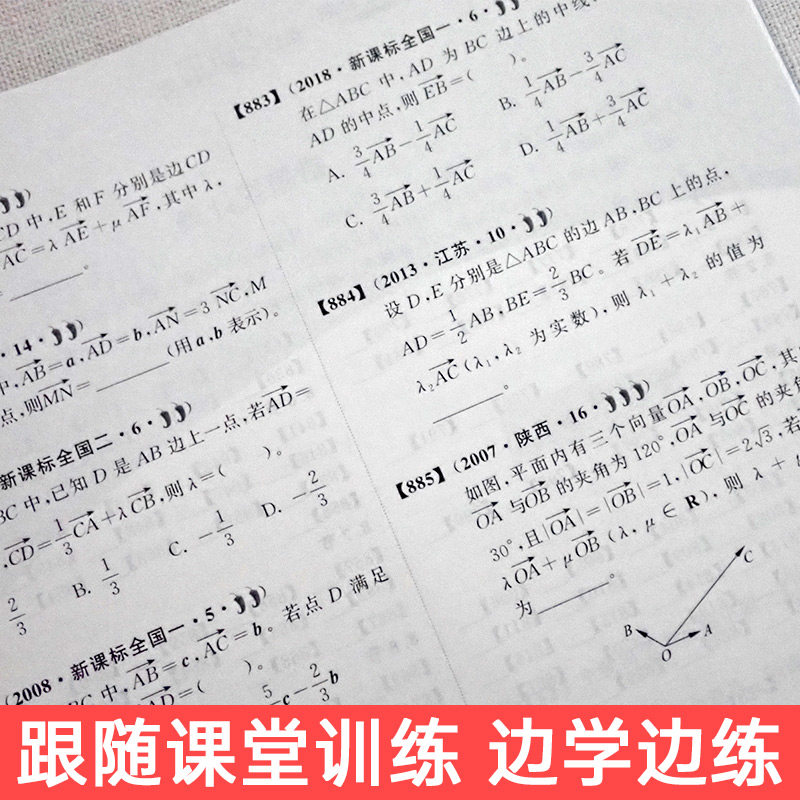 CD 中,E 和 F 分别是边CD
AC=λAE+μAF,其中 λ,
______。
·14·
中,AB=a,AD=b,AN=3NC,M
点,则MN=______(用a,b表示)。
新课标全国二·6·
BC 中,已知 D 是 AB 边上一点,若AD=
,CD=1/3CA+λCB,则λ=( )。
2/3 B. 1/3 C. -1/3 D. -2/3
(2008·新课标全国一·5·)
BC 中,AB=c,AC=b。若点 D 满足
AD=( )。
5 c-2/3b
【883】(2018·新课标全国一·6·)
在△ABC 中,AD 为 BC 边上的中线
AD 的中点,则EB=( )。
A. 3/4AB-1/4AC B. 1/4AB-3/4AC
C. 3/4AB+1/4AC D. 1/4AB+3/4AC
【884】(2013·江苏·10·)
设 D,E 分别是△ABC 的边 AB,BC 上的点,
AD=1/2AB,BE=2/3BC。若 DE=λ₁AB+
λ₂AC(λ₁,λ₂ 为实数),则 λ₁+λ₂ 的值为
______。
【885】(2007·陕西·16·)
如图,平面内有三个向量OA,OB,OC,其
OA与OB的夹角为 120°,OA与OC的夹角
30°,且|OA|=|OB|=1,|OC|=2√3,若
λOA+μOB(λ,μ∈R),则 λ+
为______。
C
B A
O
跟随课堂训练 边学边练